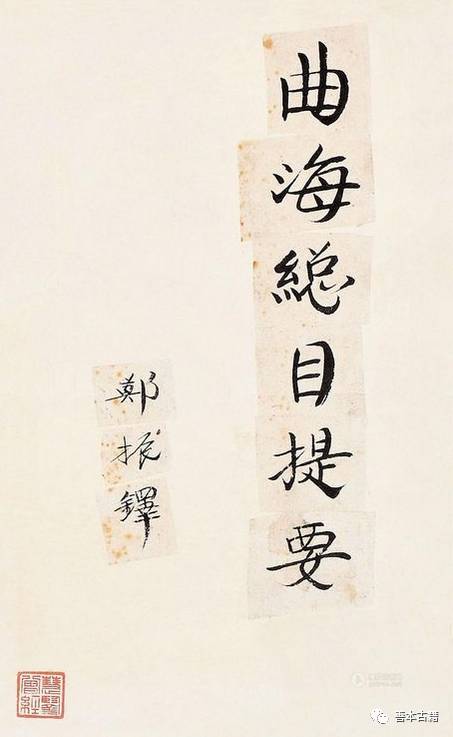 曲海総目提要
鄭振鐸
善本古籍